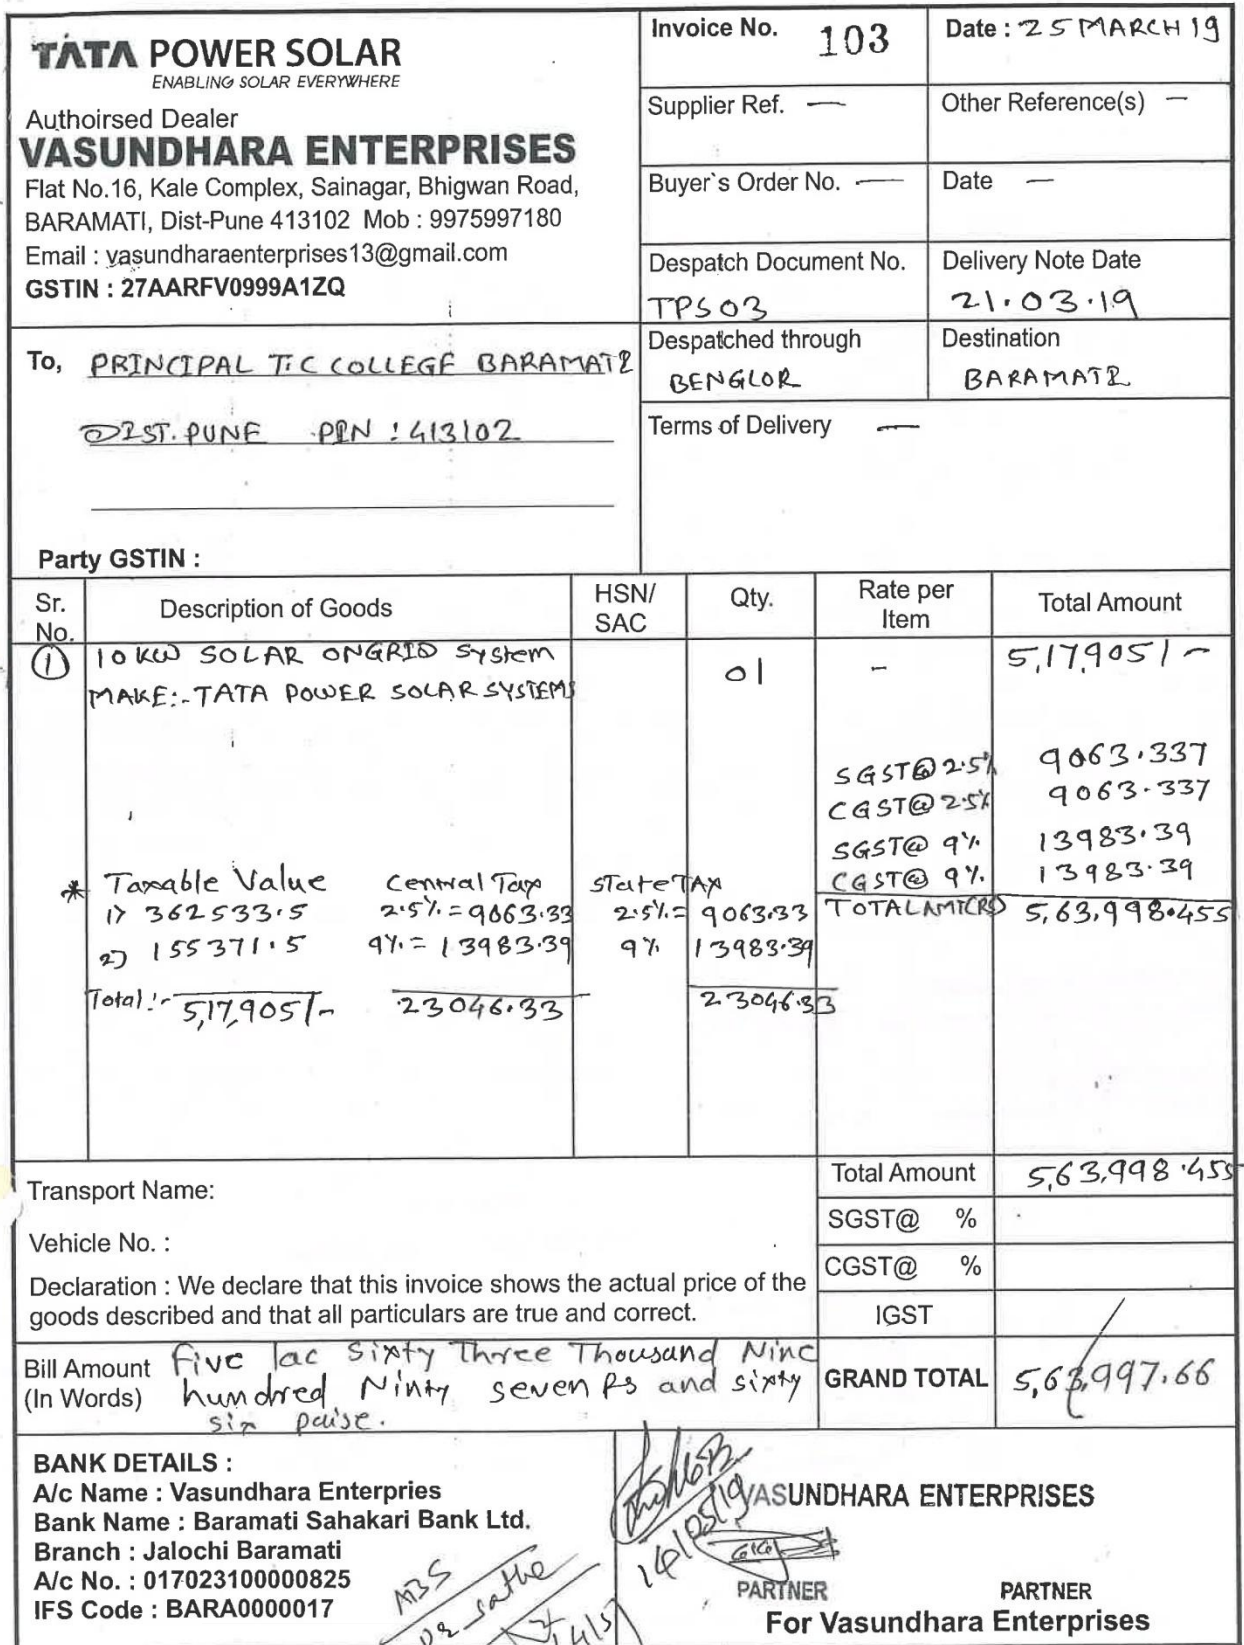 TATA POWER SOLAR
ENABLING SOLAR EVERYWHERE
Authoirsed Dealer
VASUNDHARA ENTERPRISES
Flat No.16, Kale Complex, Sainagar, Bhigwan Road,
BARAMATI, Dist-Pune 413102 Mob : 9975997180
Email : vasundharaenterprises13@gmail.com
GSTIN : 27AARFV0999A1ZQ
Invoice No. 103
Date : 25 MARCH 19
Supplier Ref. —
Other Reference(s) —
Buyer`s Order No. —
Date —
Despatch Document No.
TPS03
Delivery Note Date
21.03.19
Despatched through
BENGLOR
Destination
BARAMATI
Terms of Delivery —
To, PRINCIPAL T.C COLLEGE BARAMATI
DIST. PUNE PIN : 413102
Party GSTIN :
Sr. No.
Description of Goods
HSN/ SAC
Qty.
Rate per Item
Total Amount
1 10 KW SOLAR ONGRID System 01 - 5,17,905/-
MAKE:- TATA POWER SOLAR SYSTEMS
SGST@ 2.5% 9063.337
CGST@ 2.5% 9063.337
SGST@ 9% 13983.39
CGST@ 9% 13983.39
TOTAL AMT(RS) 5,63,998.455
* Taxable Value Central Tax State TAX
1) 362533.5 2.5% = 9063.33 2.5% = 9063.33
2) 155371.5 9% = 13983.39 9% 13983.39
Total:- 5,17,905/- 23046.33 23046.33
Transport Name:
Vehicle No. :
Declaration : We declare that this invoice shows the actual price of the
goods described and that all particulars are true and correct.
Total Amount 5,63,998.455
SGST@ %
CGST@ %
IGST
Bill Amount (In Words) five lac Sixty Three Thousand Nine
hundred Ninty seven Rs and sixty
six paise.
GRAND TOTAL 5,63,997.66
BANK DETAILS :
A/c Name : Vasundhara Enterpries
Bank Name : Baramati Sahakari Bank Ltd.
Branch : Jalochi Baramati
A/c No. : 017023100000825
IFS Code : BARA0000017
VASUNDHARA ENTERPRISES
PARTNER PARTNER
For Vasundhara Enterprises
14/05/19